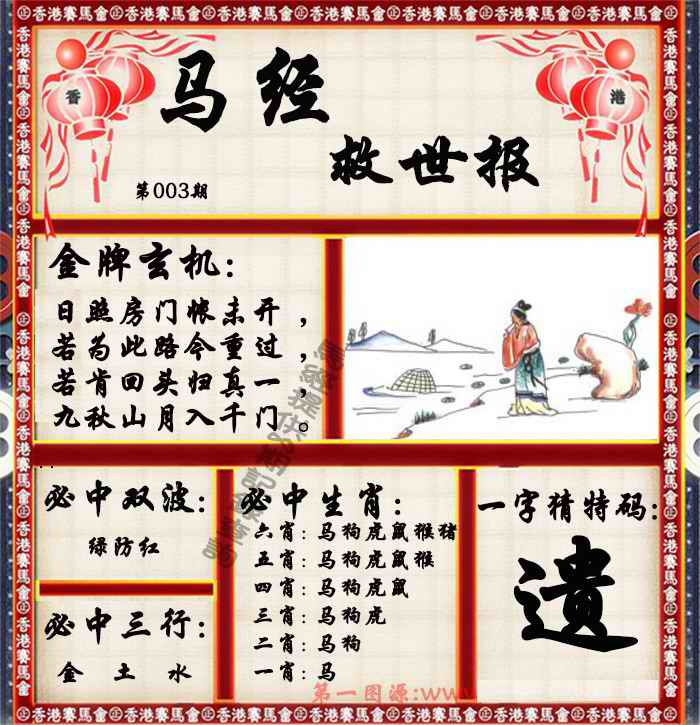 香港賽馬會
香 港
马经
救世报
第003期
金牌玄机：
日照房门帐未开，
若为此路今重过，
若肯回头归真一，
九秋山月入千门。
必中双波：
绿防红
必中三行：
金 土 水
必中生肖：
六肖：马狗虎鼠猴猪
五肖：马狗虎鼠猴
四肖：马狗虎鼠
三肖：马狗虎
二肖：马狗
一肖：马
一字猜特码：
遗
第一图源:www